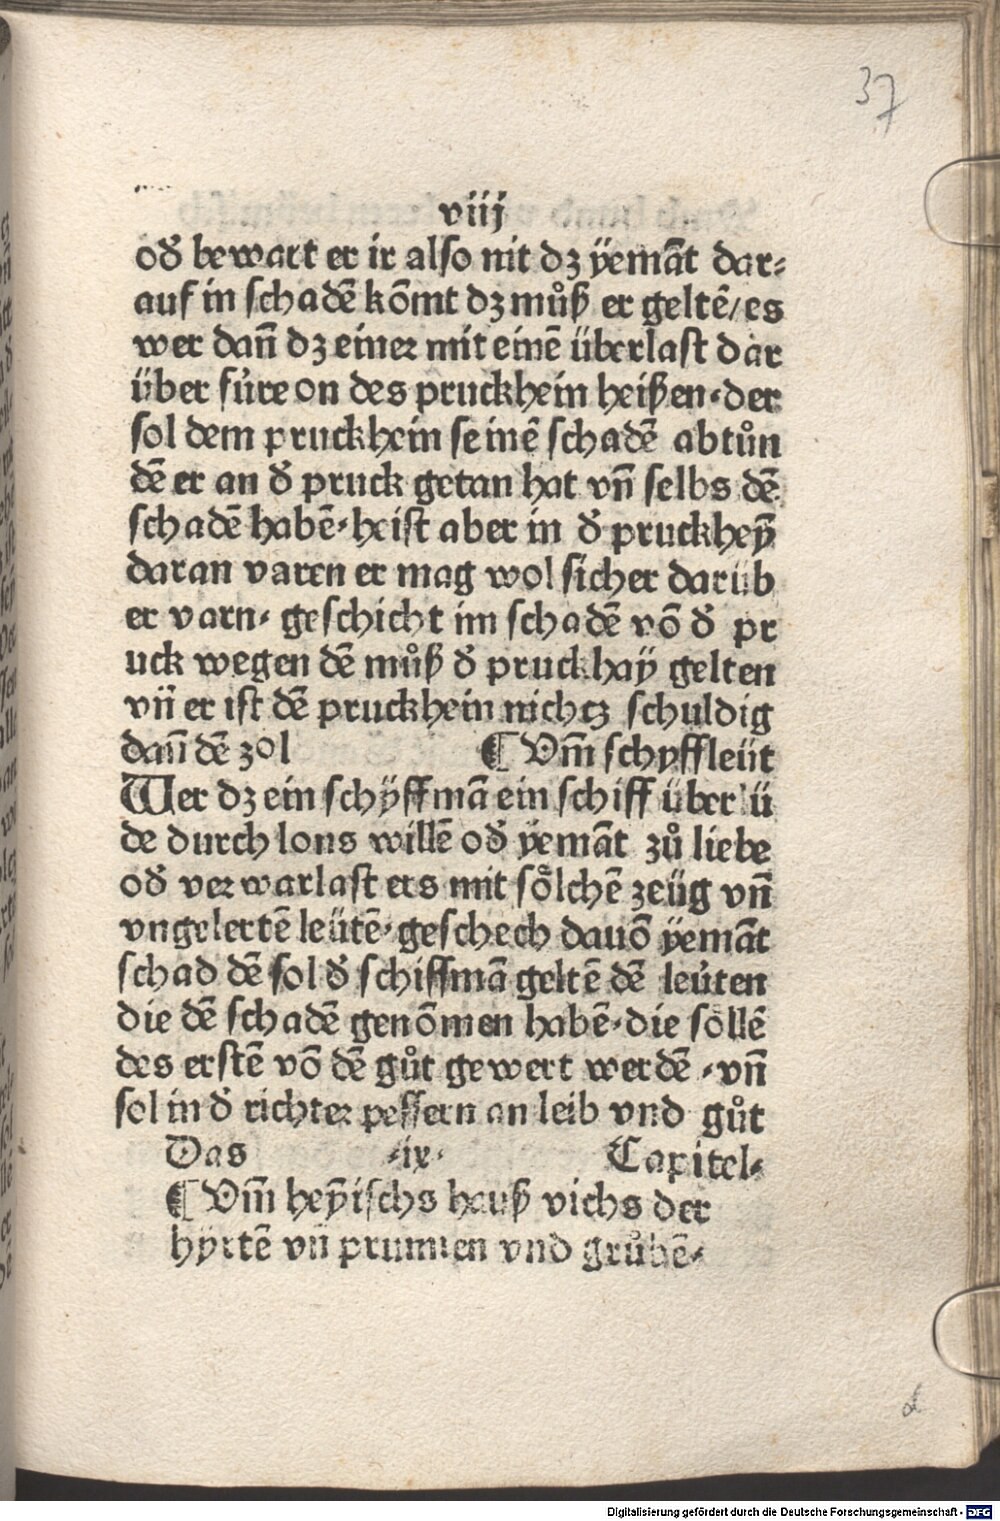 37
viij
od̕ bewart er ir also nit dz ÿemāt dar⸗
auf in schadē kōmt dz můß er geltē/es
wer dan̄ dz einer mit einē überlast dar
über fůre on des pruckhein heißen⸗der
sol dem pruckhein seinē schadē abtůn
dē er an d̕ pruck getan hat vn̄ selbs dē
schadē habē⸗heist aber in d̕ pruckheȳ
daran varen er mag wol sicher darüb
er varn⸗ geschicht im schadē vō d̕ pr
uck wegen dē můß d̕ pruckhaÿ gelten
vn̄ er ist dē pruckhein nichtz schuldig
dan̄ dē zol ¶ Vm̄ schyffleüt
Wer dz ein schÿffmā ein schiff über lü
de durch lons willē od̕ ÿemāt zů liebe
od̕ verwarlast ers mit sölchē zeüg vn̄
vngelertē leütē⸗geschech davō ÿemāt
schad dē sol d̕ schiffmā geltē dē leůten
die dē schadē genōmen habē⸗die söllē
des erstē vō dē gůt gewert werdē ⸗vn̄
sol in d̕ richter pessern an leib vnd gůt
Das ⸗ix⸗ Capitel⸗
¶ Vm̄ heÿischs hauß vichs der
hÿrtē vn̄ prunnen vnd grůbē⸗
d
Digitalisierung gefördert durch die Deutsche Forschungsgemeinschaft - DFG